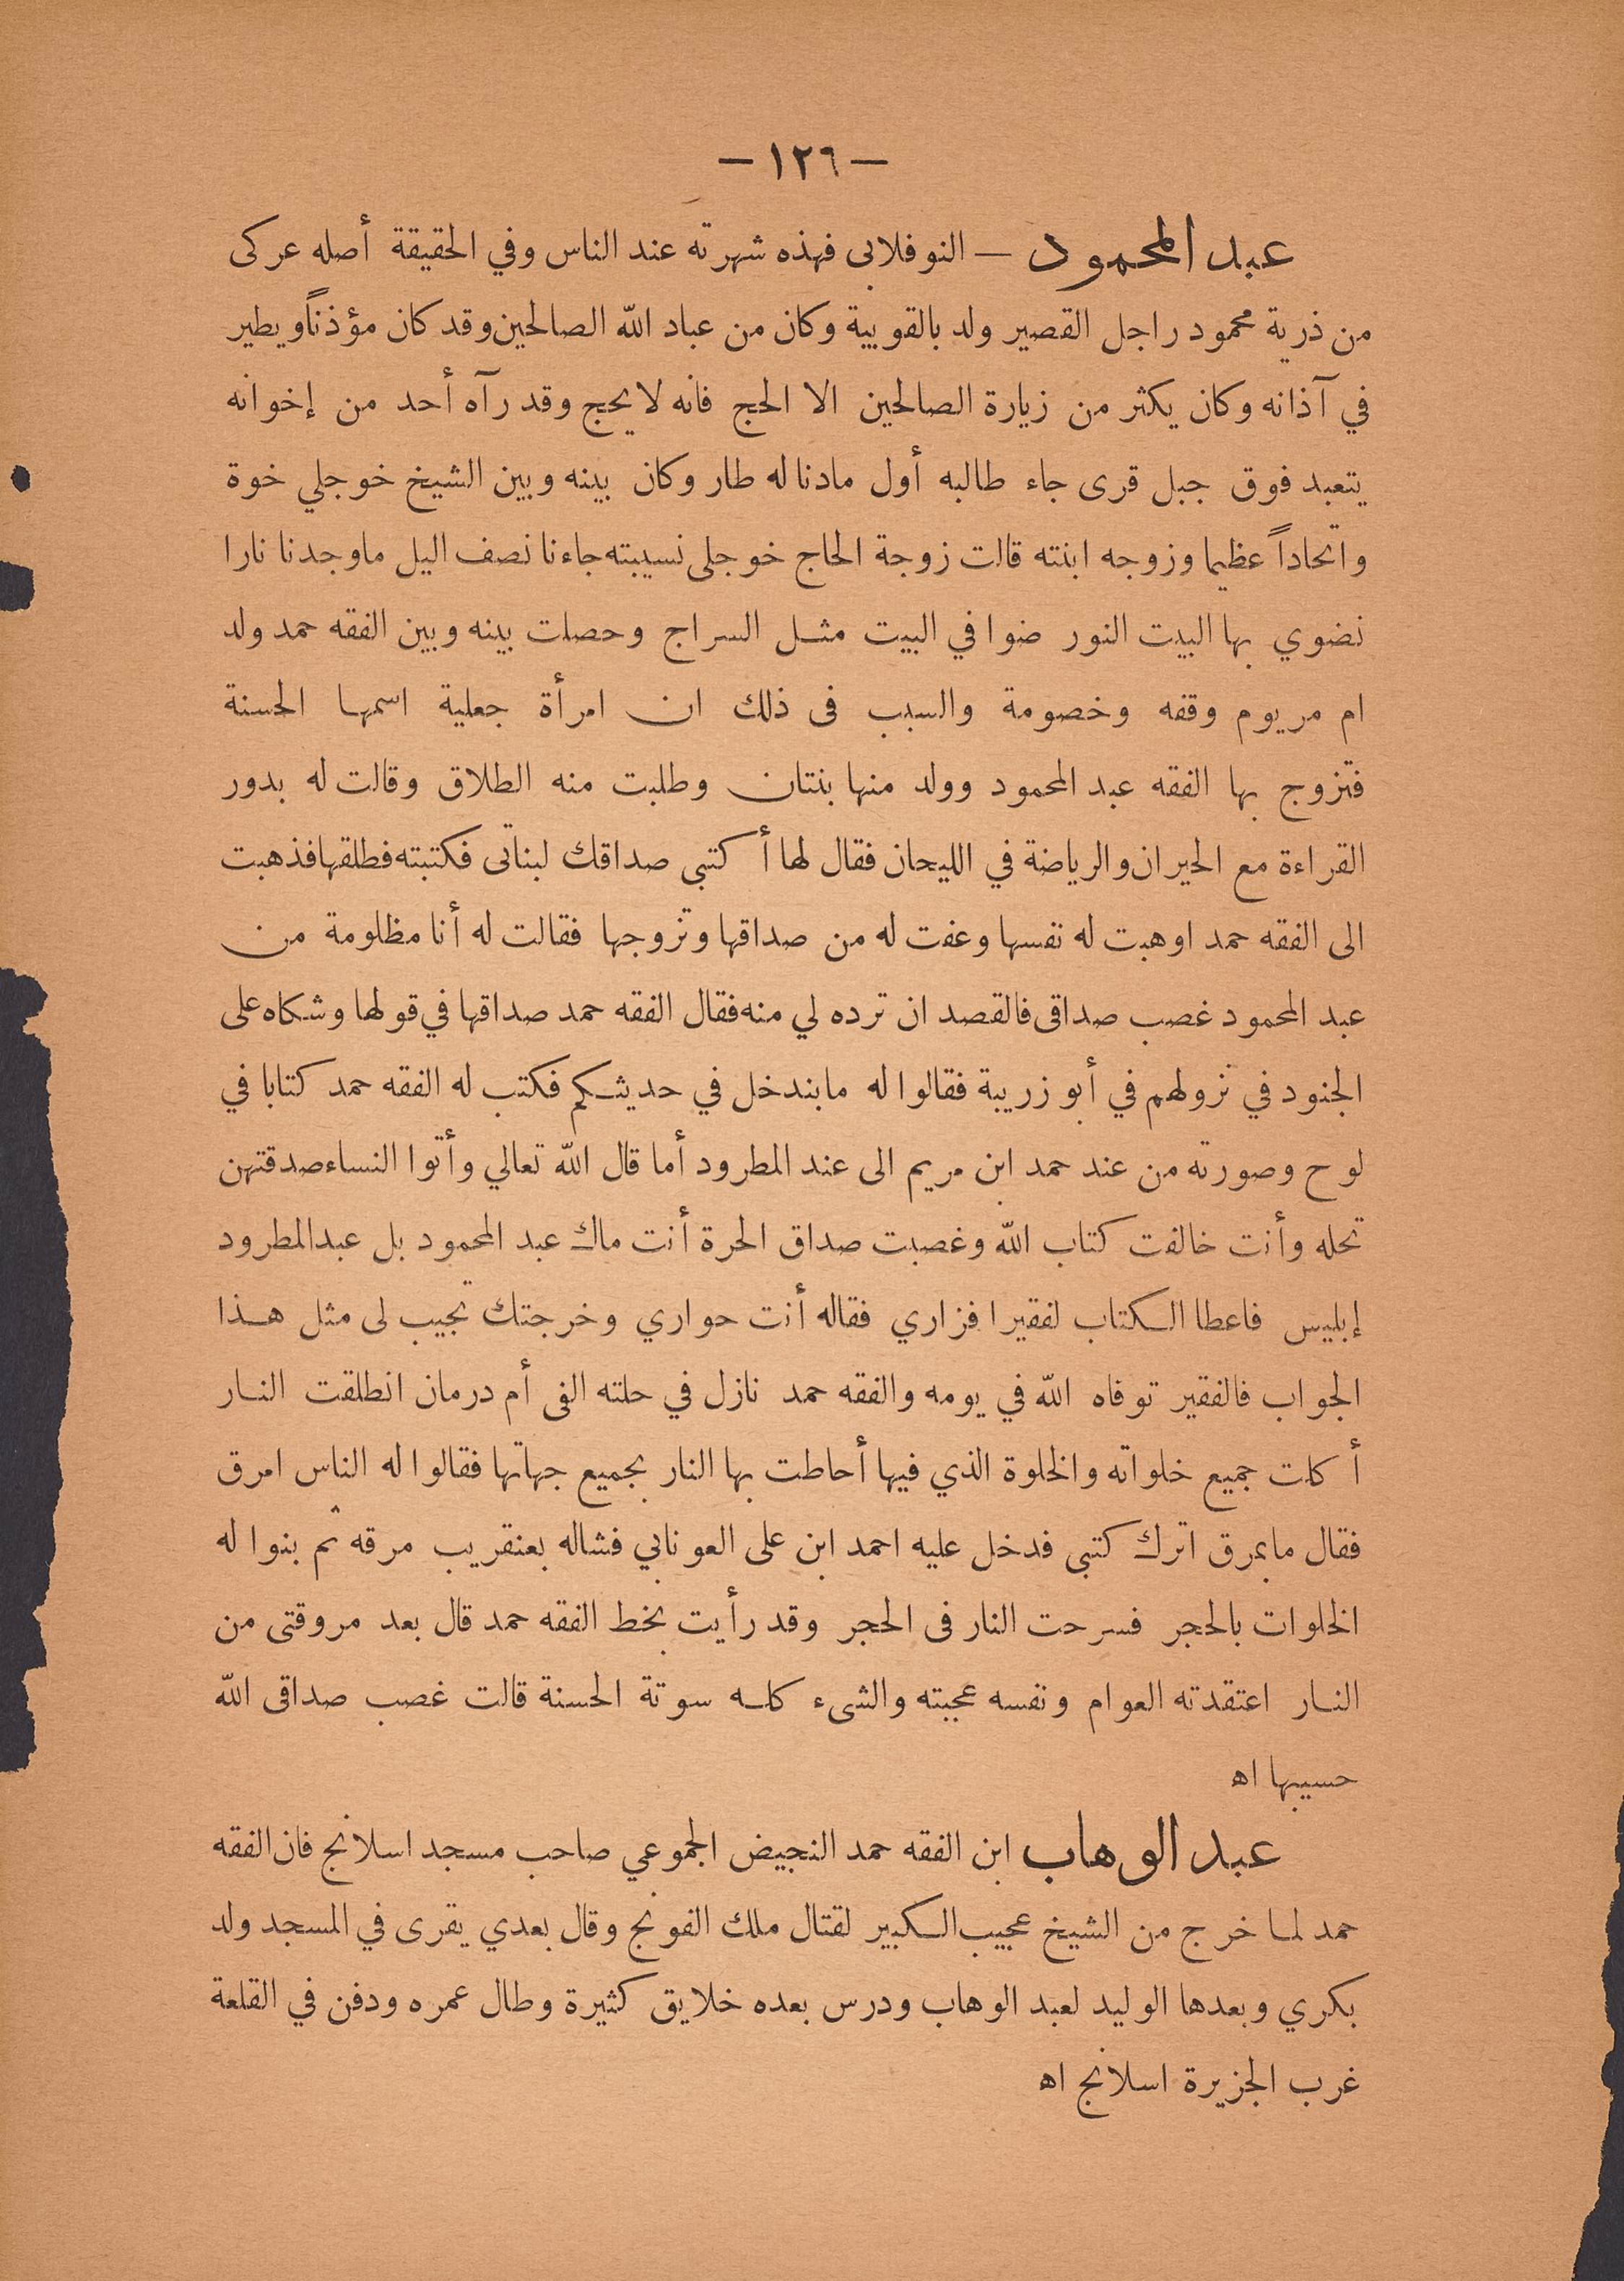 — ١٢٦ —
عبد المحمود — النوفلابى فهذه شهرته عند الناس وفي الحقيقة أصله عركى
من ذرية محمود راجل القصير ولد بالقوبية وكان من عباد الله الصالحين وقد كان مؤذناً ويطير
في آذانه وكان يكثر من زيارة الصالحين الا الحج فانه لا يحج وقد رآه أحد من إخوانه
يتعبد فوق جبل قرى جاء طالبه أول مادنا له طار وكان بينه وبين الشيخ خوجلي خوة
واتحاداً عظيما وزوجه ابنته قالت زوجة الحاج خوجلى نسيبته جاءنا نصف اليل ماوجدنا نارا
نضوي بها البيت النور ضوا في البيت مثل السراج وحصلت بينه وبين الفقه حمد ولد
ام مريوم وقفه وخصومة والسبب فى ذلك ان امرأة جعلية اسمها الحسنة
فتزوج بها الفقه عبد المحمود وولد منها بنتان وطلبت منه الطلاق وقالت له بدور
القراءة مع الحيران والرياضة في الليحان فقال لها أكتبى صداقك لبناتى فكتبته فطلقها فذهبت
الى الفقه حمد اوهبت له نفسها وعفت له من صداقها وتزوجها فقالت له أنا مظلومة من
عبد المحمود غصب صداقى فالقصد ان ترده لي منه فقال الفقه حمد صداقها في قولها وشكاه على
الجنود في نزولهم في أبو زريبة فقالوا له مابندخل في حديثكم فكتب له الفقه حمد كتابا في
لوح وصورته من عند حمد ابن مريم الى عند المطرود أما قال الله تعالي وأتوا النساء صدقتهن
نحله وأنت خالفت كتاب الله وغصبت صداق الحرة أنت ماك عبد المحمود بل عبد المطرود
إبليس فاعطا الكتاب لفقيرا فزاري فقاله أنت حواري وخرجتك تجيب لى مثل هذا
الجواب فالفقير توفاه الله في يومه والفقه حمد نازل في حلته الفى أم درمان انطلقت النار
أكلت جميع خلواته والخلوة الذي فيها أحاطت بها النار بجميع جهاتها فقالوا له الناس امرق
فقال مابمرق اترك كتبى فدخل عليه احمد ابن على العوناني فشاله بعنقريب مرقه ثم بنوا له
الخلوات بالحجر فسرحت النار فى الحجر وقد رأيت بخط الفقه حمد قال بعد مروقتى من
النار اعتقدته العوام ونفسه عجبته والشىء كله سوته الحسنة قالت غصب صداقى الله
حسيبها اه
عبد الوهاب ابن الفقه حمد النجيض الجموعي صاحب مسجد اسلانج فان الفقه
حمد لما خرج من الشيخ عجيب الكبير لقتال ملك الفونج وقال بعدي يقرى في المسجد ولد
بكري وبعدها الوليد لعبد الوهاب ودرس بعده خلايق كثيرة وطال عمره ودفن في القلعة
غرب الجزيرة اسلانج اه